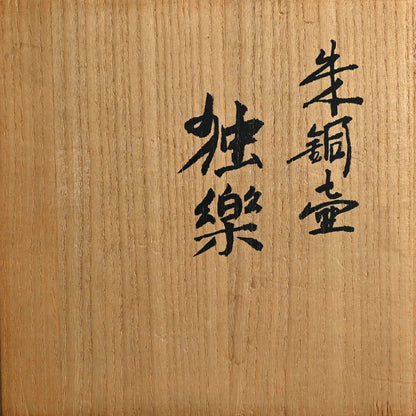 朱銅壷
独樂